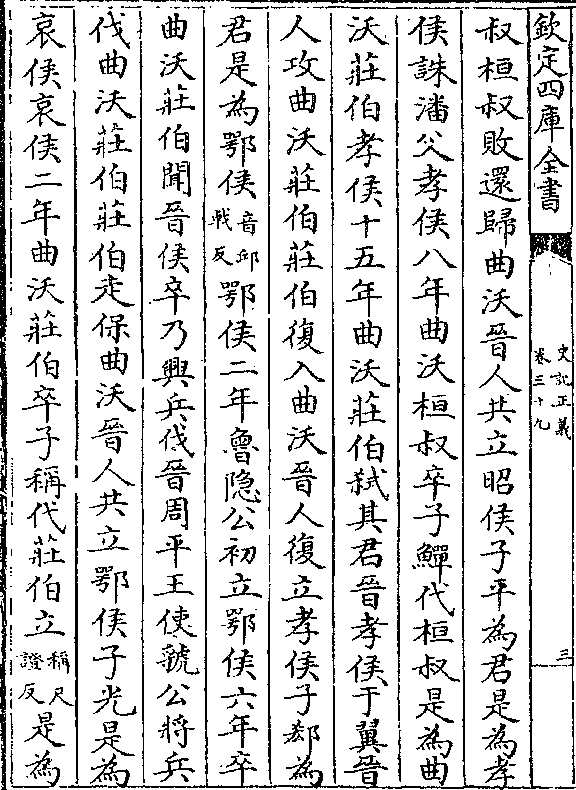 欽定四庫全書
史記正義
卷三十九
三
叔桓叔敗還歸曲沃晉人共立昭侯子平為君是為孝
侯誅潘父孝侯八年曲沃桓叔卒子鱓代桓叔是為曲
沃莊伯孝侯十五年曲沃莊伯弑其君晉孝侯于翼晉
人攻曲沃莊伯莊伯復入曲沃晉人復立孝侯子郄為
君是為鄂侯音邱戟反鄂侯二年魯隐公初立鄂侯六年卒
曲沃莊伯聞晉侯卒乃興兵伐晉周平王使虢公將兵
伐曲沃莊伯莊伯走保曲沃晉人共立鄂侯子光是為
哀侯哀侯二年曲沃莊伯卒子稱代莊伯立稱尺證反是為